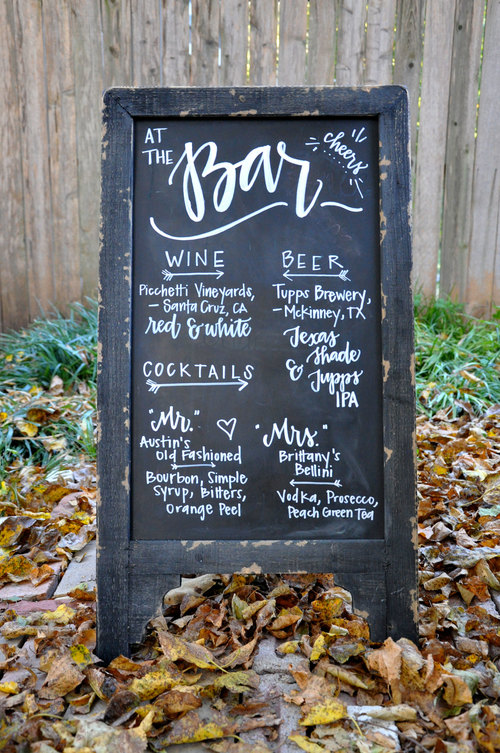 AT
THE Bar
cheers
WINE
Picchetti Vineyards,
- Santa Cruz, CA
red & white
BEER
Tupps Brewery,
- McKinney, TX
Texas
Shade
& Tupps
IPA
COCKTAILS
"Mr."
Austin's
Old Fashioned
Bourbon, Simple
Syrup, Bitters,
Orange Peel
"Mrs."
Brittany's
Bellini
Vodka, Prosecco,
Peach Green Tea